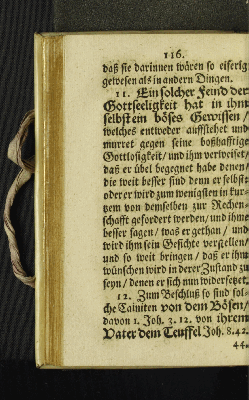 116.
daß sie darinnen wären so eiferig
gewesen als in andern Dingen.
11. Ein solcher Feind der
Gottseeligkeit hat in ihm
selbst ein böses Gewissen/
welches entweder auffstehet und
murret gegen seine boßhafftige
Gottlosigkeit/ und ihm verweiset/
daß er übel begegnet habe denen/
die weit besser sind denn er selbst:
oder er wird zum wenigsten in kur-
tzem von demselben zur Rechen-
schafft gefordert werden/ und ihme
besser sagen/ was er gethan/ und
wird ihm sein Gesichte verstellen/
und so weit bringen/ daß er ihm
wünschen wird in derer Zustand zu
seyn/ denen er sich nun widersetzet.
12. Zum Beschluß so sind sol-
che Cainiten von dem Bösen/
davon 1. Joh. 3. 12. von ihrem
Vater dem Teuffel Joh. 8. 42.
44.